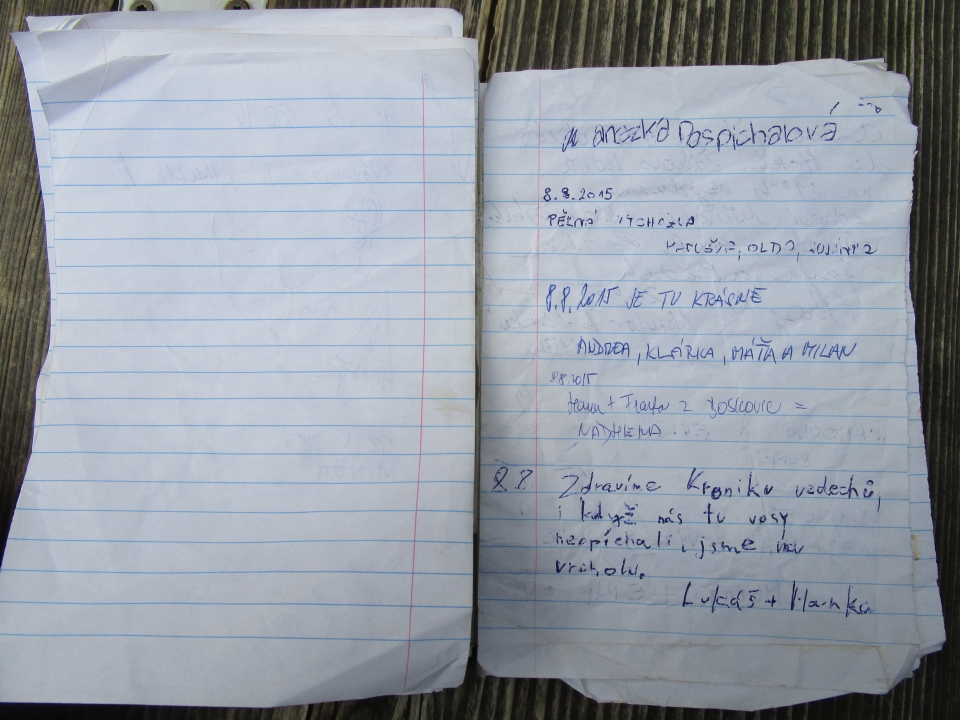 Anežka Dospíchalová
8.8.2015
PĚKNÁ VYCHÁZKA
OLDA,
8.8.2015 JE TU KRÁSNĚ
ANDREA, KLÁRKA, MÁŤA A MILAN
8.8.2015
Hana + z BOSKOVIC =
NÁDHERA
8.8. Zdravíme Kroniku vzdechů,
i když nás tu vosy
neopíchali, jsme na
vrcholu.
Lukáš + Hanka